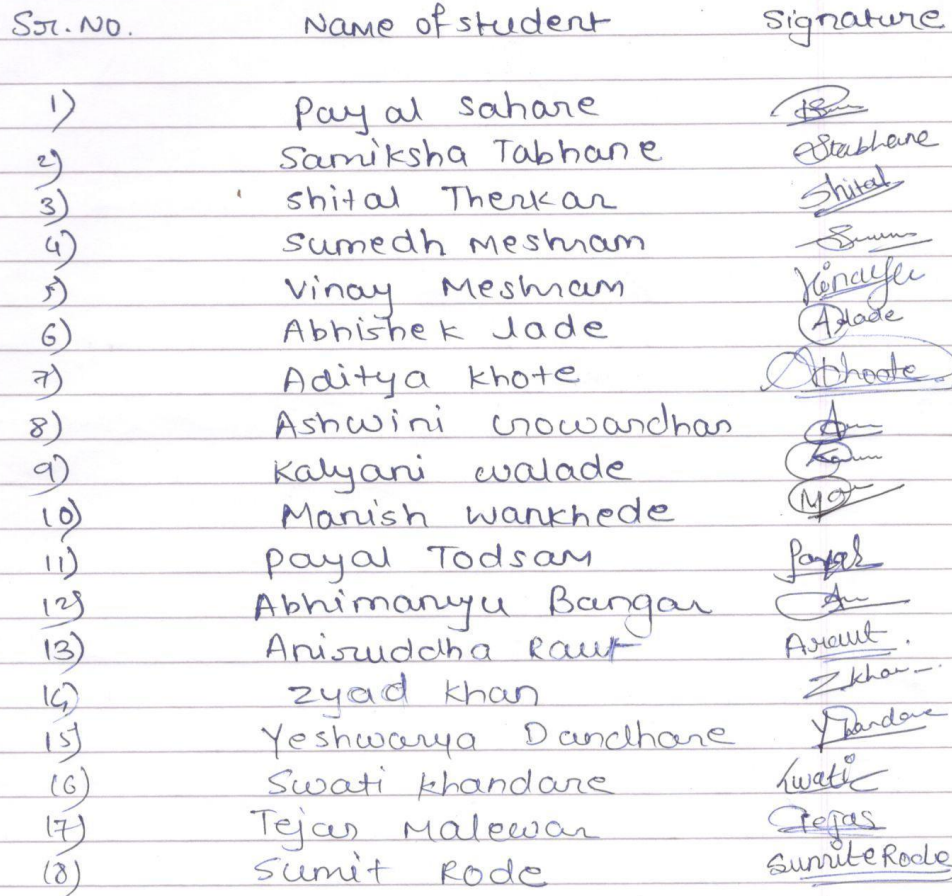 Sr. No. Name of student Signature
1) Payal Sahare
2) Samiksha Tabhane Stabhane
3) Shital Therkar Shital
4) Sumedh Meshram
5) Vinay Meshram
6) Abhishek Lade Alade
7) Aditya Khote
8) Ashwini Gowardhan
9) Kalyani Walade
10) Manish Wankhede
11) Payal Todsam Payal
12) Abhimanyu Bangar
13) Aniruddha Raut Araut.
14) Zyad Khan Zkhan
15) Yeshwarya Dandhare
16) Swati Khandare Swati
17) Tejas Malewar Tejas
18) Sumit Rode Sumit Rode